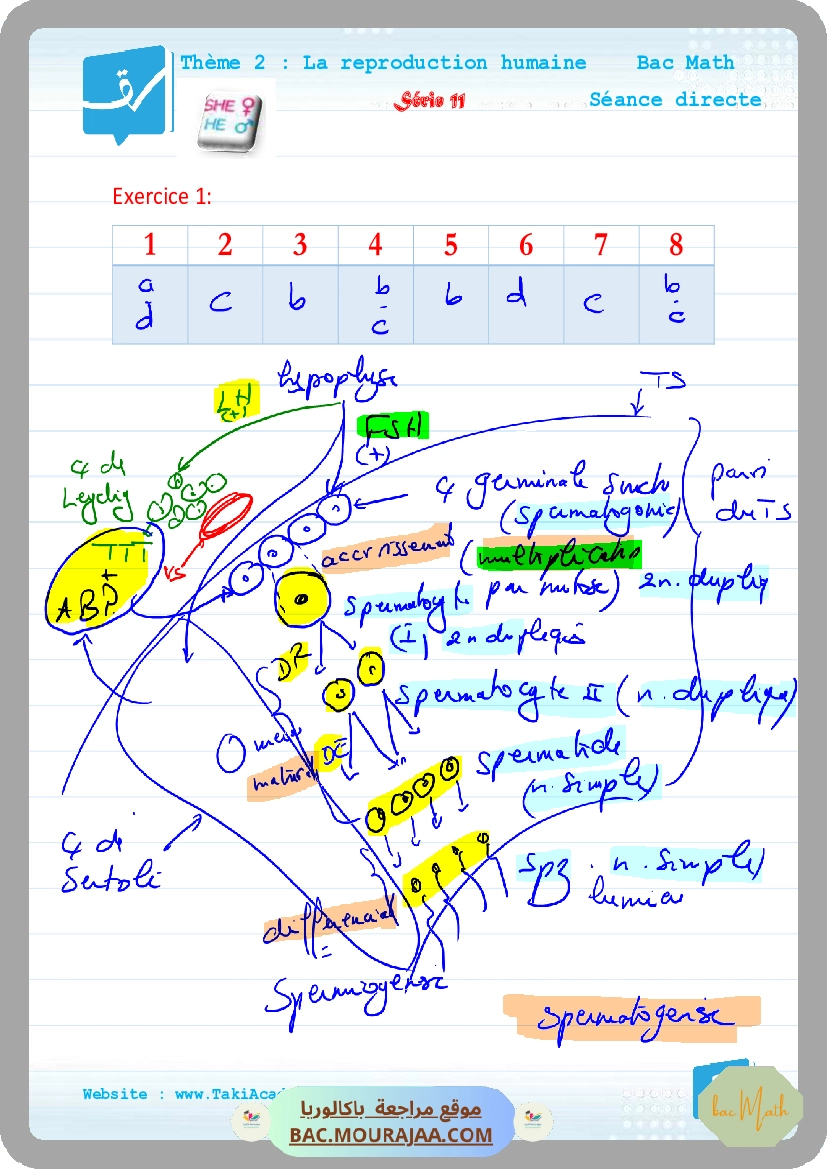 Thème 2 : La reproduction humaine Bac Math
Série 11 Séance directe
SHE ♀
HE ♂
Exercice 1:
1 2 3 4 5 6 7 8
a d c b b c b d c b c
hypophyse
TS
LH
(+)
FSH
(+)
de
Leydig
germinale
(spermatogonie)
paroi
du TS
accroissement
(multiplicatio
par mitose) 2n. dupliq
VS
ABP
+
spermatocyte
(I)
DR
spermatocyte II (n. dupliqué)
DE
spermatide
(n. simple)
de
Sertoli
spz. n. simple)
lumière
Spermiogenèse
spermatogenèse
Website : www.TakiAcad
موقع مراجعة باكالوريا
BAC.MOURAJAA.COM
bac Math